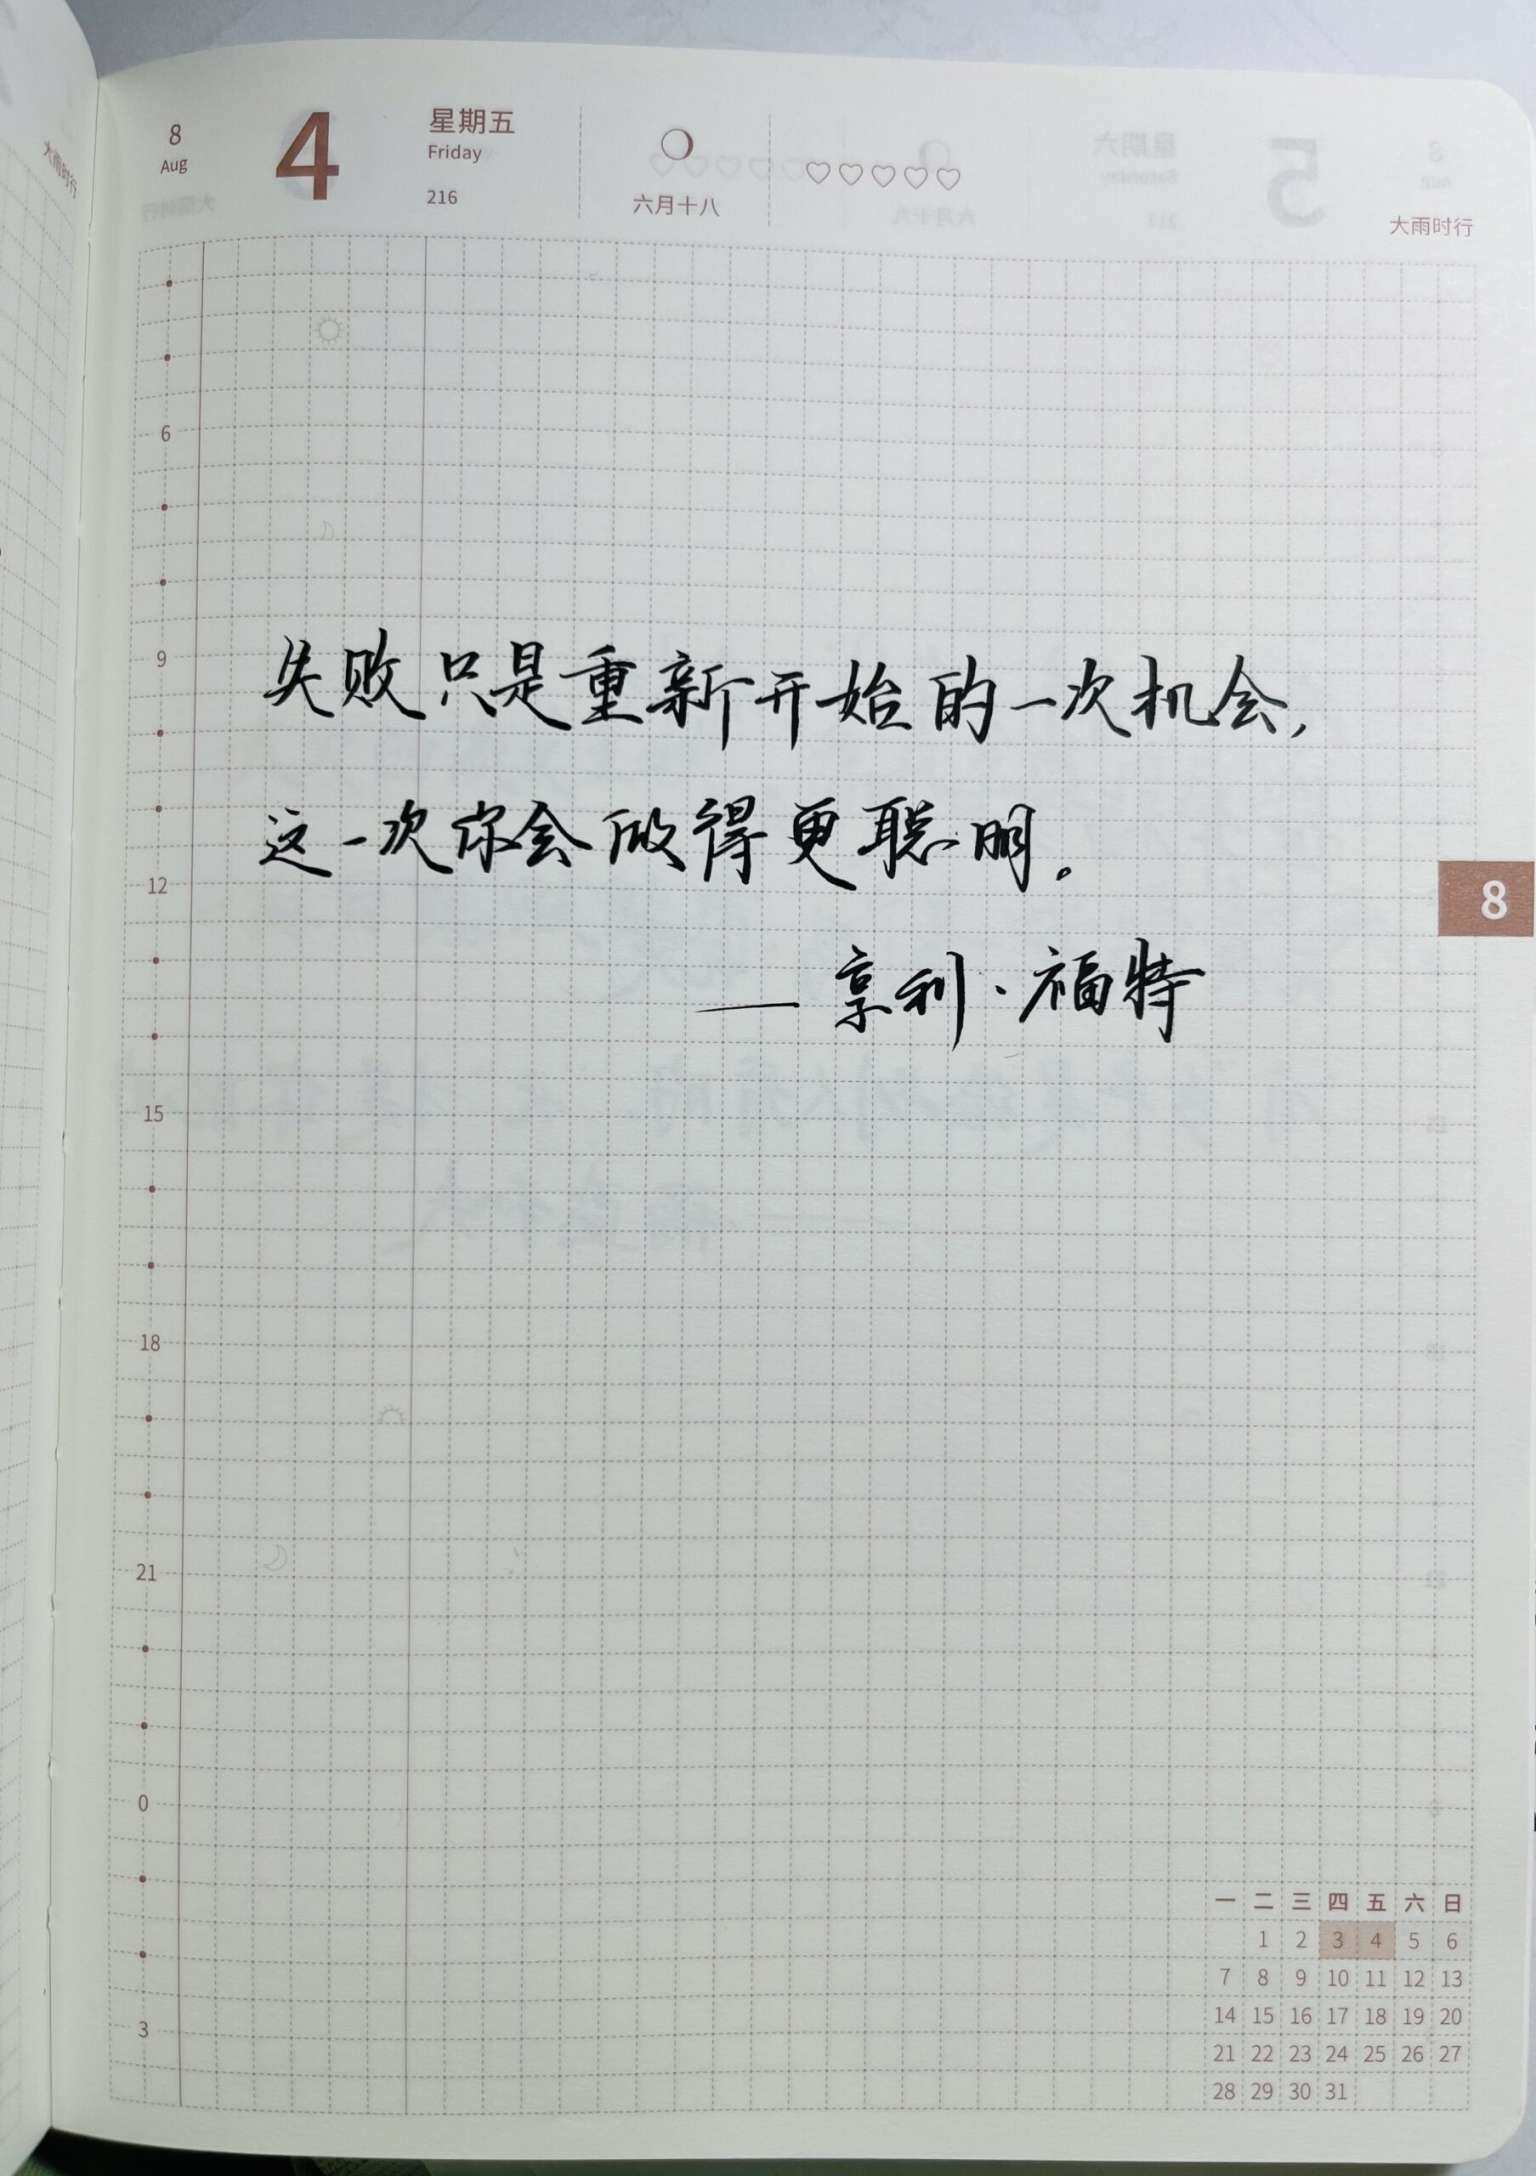 8
Aug
4
星期五
Friday
216
六月十八
大雨时行
大雨时行
6
9
失败只是重新开始的一次机会,
这一次你会做得更聪明。
12
8
——亨利·福特
15
18
21
0
3
一 二 三 四 五 六 日
1 2 3 4 5 6
7 8 9 10 11 12 13
14 15 16 17 18 19 20
21 22 23 24 25 26 27
28 29 30 31